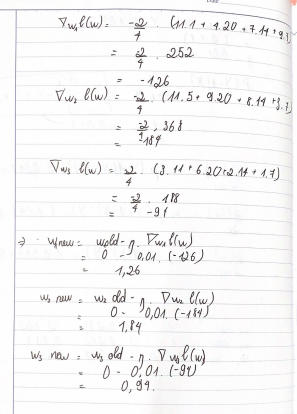 ∇w₁ l(w) = -2/4 . (11.1 + 4.20 + 7.14 + 9.7
= -2/4 . 252
= -126
∇w₂ l(w) = -2/4 . (11.5 + 9.20 + 8.14 + 3.7
= -2/4 . 368
= -184
∇w₃ l(w) = -2/4 . (3.11 + 6.20 + 2.14 + 1.7)
= -2/4 . 188
= -94
=> w₁ new = w₁ old - η . ∇w₁ l(w)
= 0 - 0,01. (-126)
= 1,26
w₂ new = w₂ old - η . ∇w₂ l(w)
= 0 - 0,01. (-184)
= 1,84
w₃ new = w₃ old - η . ∇w₃ l(w)
= 0 - 0,01. (-94)
= 0,94.